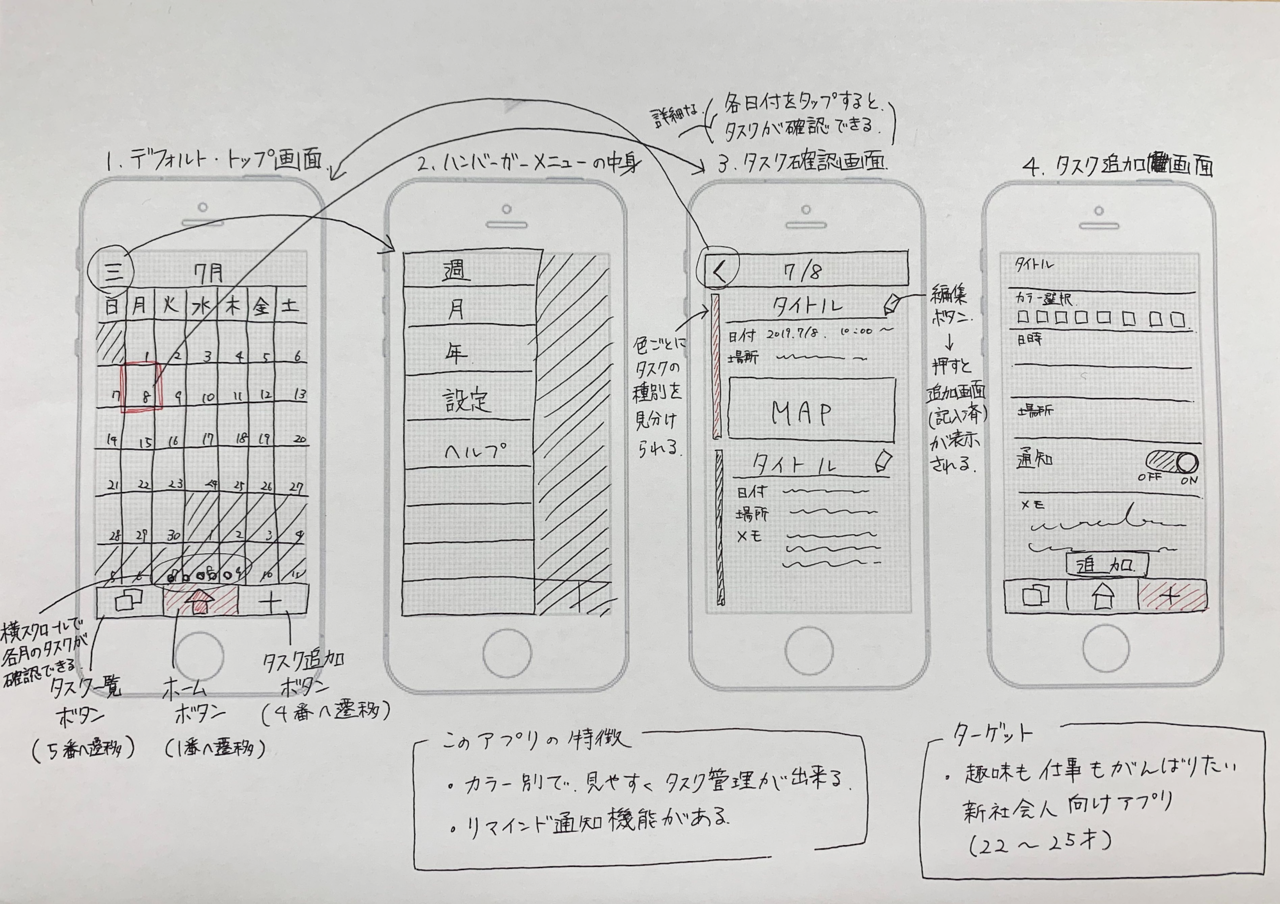 1. デフォルト・トップ画面
三
7月
日 月 火 水 木 金 土
1 2 3 4 5 6
7 8 9 10 11 12 13
14 15 16 17 18 19 20
21 22 23 24 25 26 27
28 29 30 1 2 3 4
5 6 7 8 9 10 11
横スクロールで
各月のタスクが
確認できる.
タスク一覧
ボタン
(5番へ遷移)
ホーム
ボタン
(1番へ遷移)
タスク追加
ボタン
(4番へ遷移)
2. ハンバーガーメニューの中身
週
月
年
設定
ヘルプ
詳細な
各日付をタップすると、
タスクが確認できる.
3. タスク確認画面
< 7/8
タイトル
日付 2019.7/8. 10:00〜
場所
MAP
タイトル
日付
場所
メモ
色ごとに
タスクの
種別を
見分け
られる.
編集
ボタン.
↓
押すと
追加画面
(記入済)
が表示
される.
4. タスク追加画面
タイトル
カラー選択
日時
場所
通知
OFF ON
メモ
追加
+
このアプリの特徴
・カラー別で、見やすくタスク管理が出来る.
・リマインド通知機能がある.
ターゲット
・趣味も仕事もがんばりたい
新社会人向けアプリ
(22〜25才)